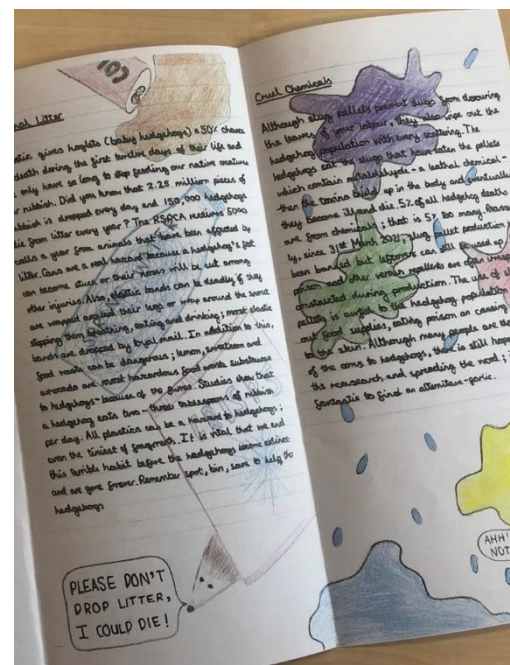 COL
nal Litter
stic gives hoglets (baby hedgehogs) a 50% chance
death during the first twelve days of their life and
only have so long to stop feeding our native creatures
r rubbish. Did you know that 2.25 million pieces of
rubbish is dropped every day and 150,000 hedgehogs
die from litter every year? The RSPCA recieve 5000
calls a year from animals that have been affected by
litter. Cans are a real hazard because a hedgehog's feet
can become stuck or their noses will be cut among
other injuries. Also, elastic bands can be deadly if they
are wrapped around their legs or wrap around the snout
stopping them breathing, eating and drinking; more elastic
bands are dropped by royal mail. In addition to this,
food waste can be dangerous; lemon, and
avocado are most hazardous food waste substances
to hedgehogs - because of the fumes. Studies show that
a hedgehog eats two - three tablespoons of rubbish
per day. All plastics can be a hazard to hedgehogs;
even the tiniest of fragments. It is vital that we end
this terrible habit before the hedgehogs become extinct
and are gone forever. Remember spot, bin, save to help the
hedgehogs
CRISPS
PLEASE DON'T
DROP LITTER,
I COULD DIE!
Cruel Chemicals
Although slug pellets prevent slugs from devouring
the leaves of your , they also wipe out the
hedgehog population with every scattering. The
hedgehogs eat the slugs that have eaten the pellets
which contain metaldehyde - a lethal chemical -
then the toxins build up in the body and eventually
they become ill and die. 5% of all hedgehog deaths
are from chemicals; that is 5% too many.
ly, since 31st March 2021 slug pellet production
been banned but leftovers can still be used up
other vermin repellents are often
during production. The use of
pellets is to the hedgehog population
food supplies, eating poison an causing
to the skin. Although many people are
of the to hedgehogs, there is still hope
the reasearch and spreading the word;
fantastic to find an
AHH'
NOT